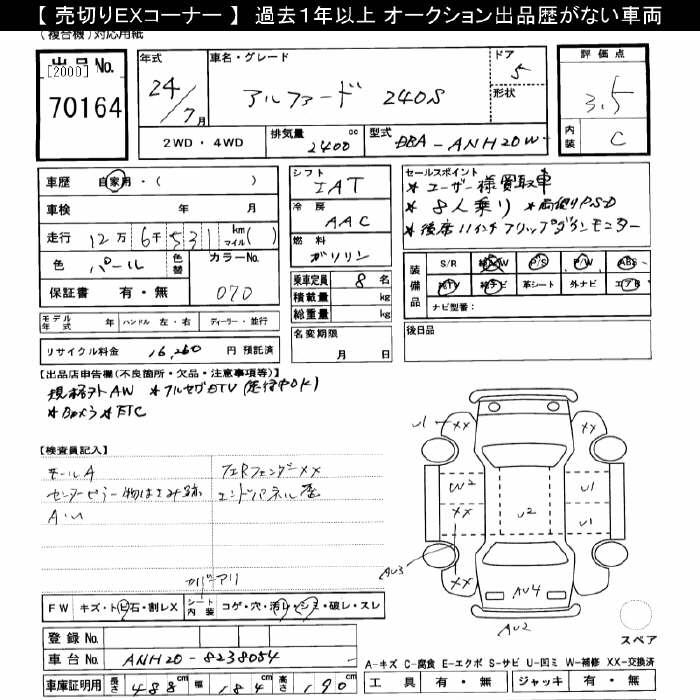 【 売切りEXコーナー 】 過去1年以上 オークション出品歴がない車両
(複合機)対応用紙
出品 No.
[2000]
70164
年式
24/7月
車名・グレード
アルファード 240S
ドア
5
形状
評価点
3.5
内装
C
2WD ・ 4WD
排気量
2400 cc
型式
DBA - ANH20W -
車歴 自家用・( )
車検 年 月
走行 12万 6千 531 km マイル ( )
色 パール
色替
カラーNo.
070
保証書 有・無
シフト
IAT
冷房
AAC
燃料
ガソリン
乗車定員 8 名
積載量 kg
総重量 kg
名変期限
月 日
セールスポイント
* ユーザー様買取車
* 8人乗り * 両側PSD
* 後席11インチフリップダウンモニター
装備品
S/R 純AW P/S P/W ABS
純TV 純ナビ 革シート 外ナビ エアB
ナビ型番:
後日品
モデル年式 年 ハンドル 左・右 ディーラー・並行
リサイクル料金 16,260 円 預託済
【出品店申告欄(不良箇所・欠品・注意事項等)】
* フルセグDTV (走行中OK)
* Bカメラ * ETC
【検査員記入】
モールA
フェRフェンダーXX
エンドパネル歪
A・U
カバーアリ
FW キズ・トビ石・割レX
シート内装 コゲ・穴・汚レ・シミ・破レ・スレ
登録 No.
車台 No. ANH20-8238054
車庫証明用 長さ 488 cm 幅 184 cm 高さ 190 cm
U1
XX
XX
W2
XX
U2
U1
U1
AU3
XX
AU4
AU2
スペア
A-キズ C-腐食 E-エクボ S-サビ U-凹ミ W-補修 XX-交換済
工具 有・無 ジャッキ 有・無